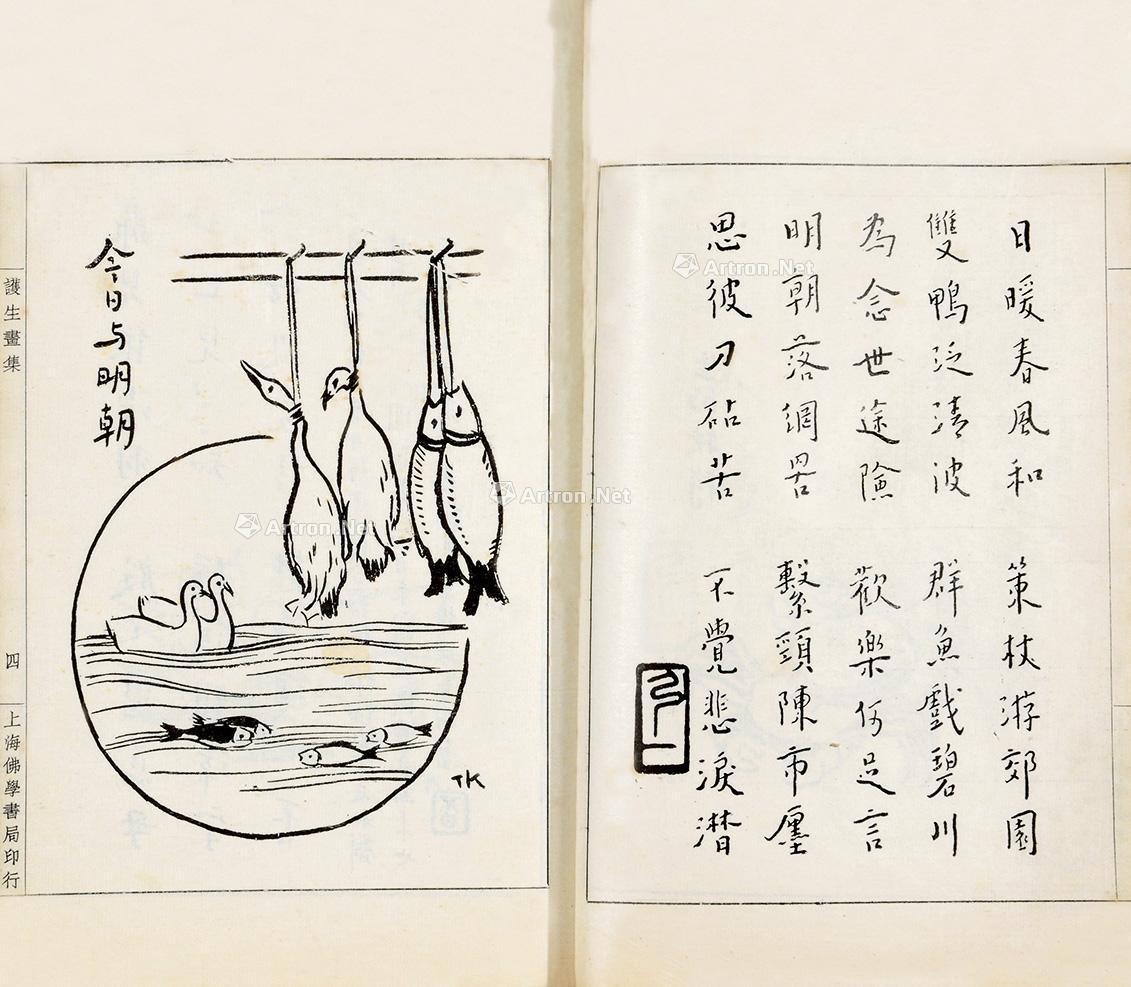 日暖春風和 策杖游郊園
雙鴨泛清波 群魚戲碧川
為念世途險 歡樂何足言
明朝落網罟 繫頸陳市廛
思彼刀砧苦 不覺悲淚潸
今日与明朝
TK
護生畫集
四
上海佛學書局印行
Artron.Net
Artron.Net
Artron.Net
Artron.Net